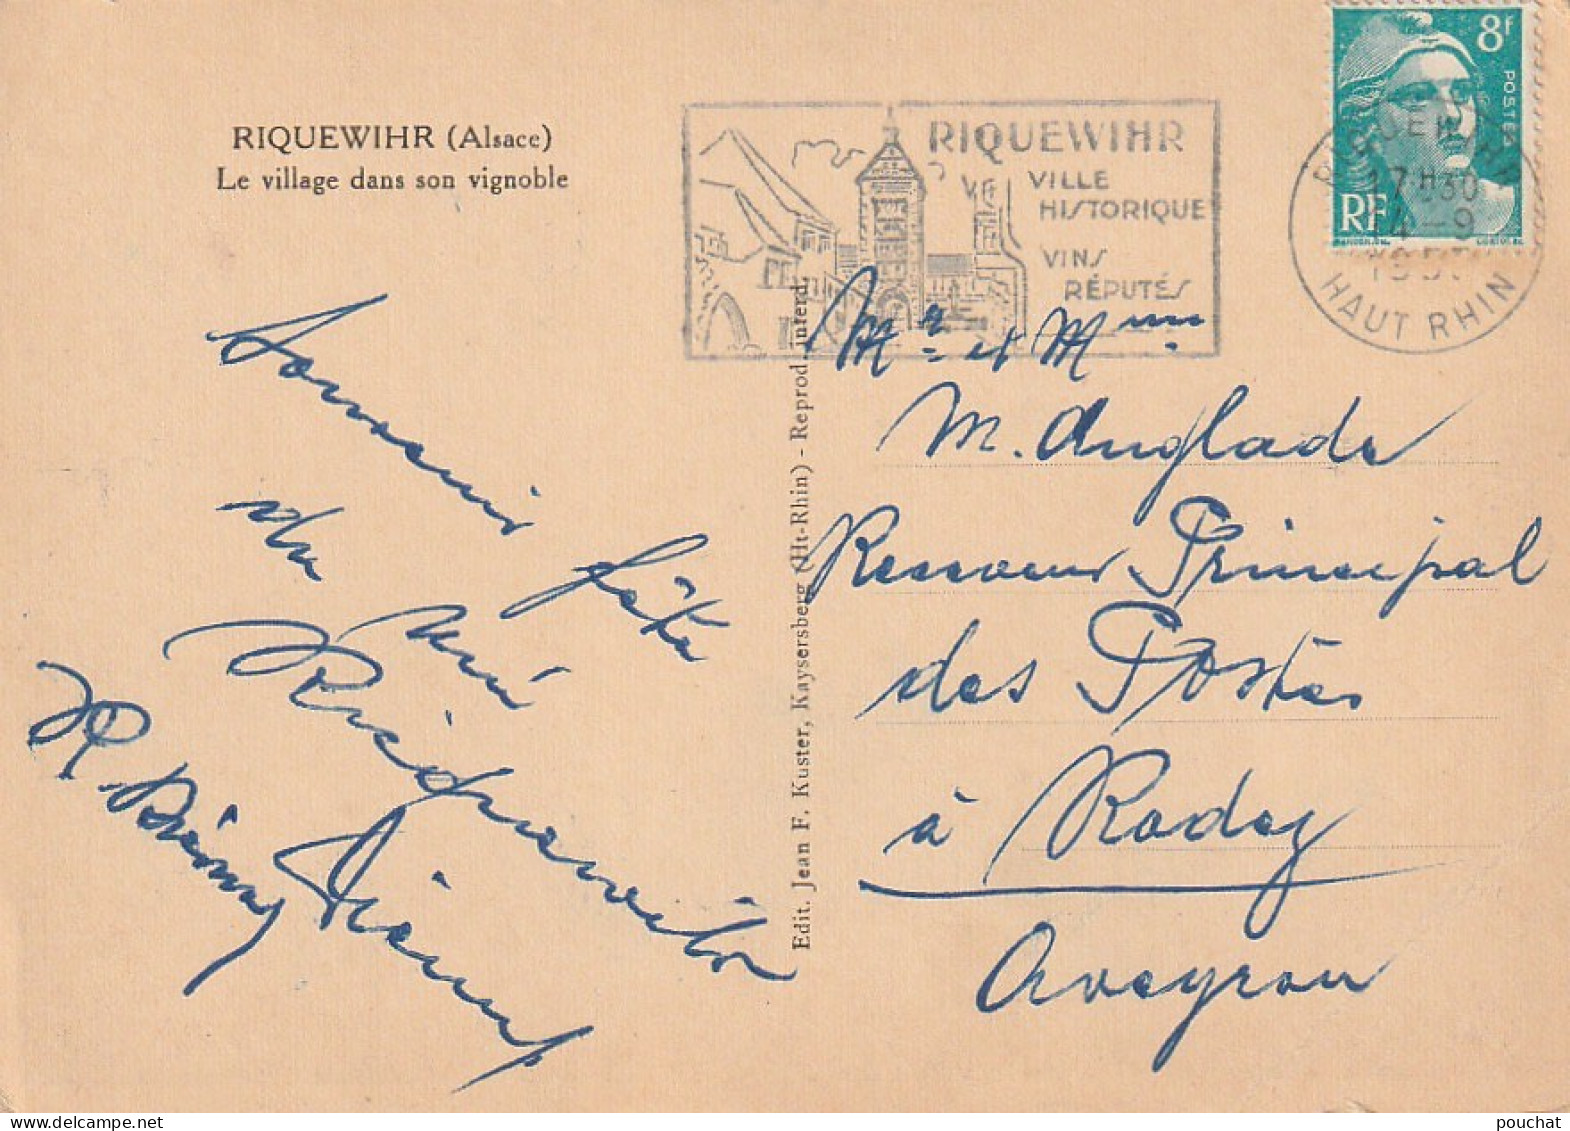 RIQUEWIHR (Alsace)
Le village dans son vignoble
RIQUEWIHR
VILLE
HISTORIQUE
VINS
RÉPUTÉS
8F
POSTES
RF
17H30
4-9
HAUT RHIN
Edit. Jean F. Kuster, Kaysersberg (Ht-Rhin) - Reprod. interd.
Souvenir fête
du
Riedesweihr
Mr et Mme
M. Anglade
Receveur Principal
des Postes
à Rodez
Aveyron
pouchat